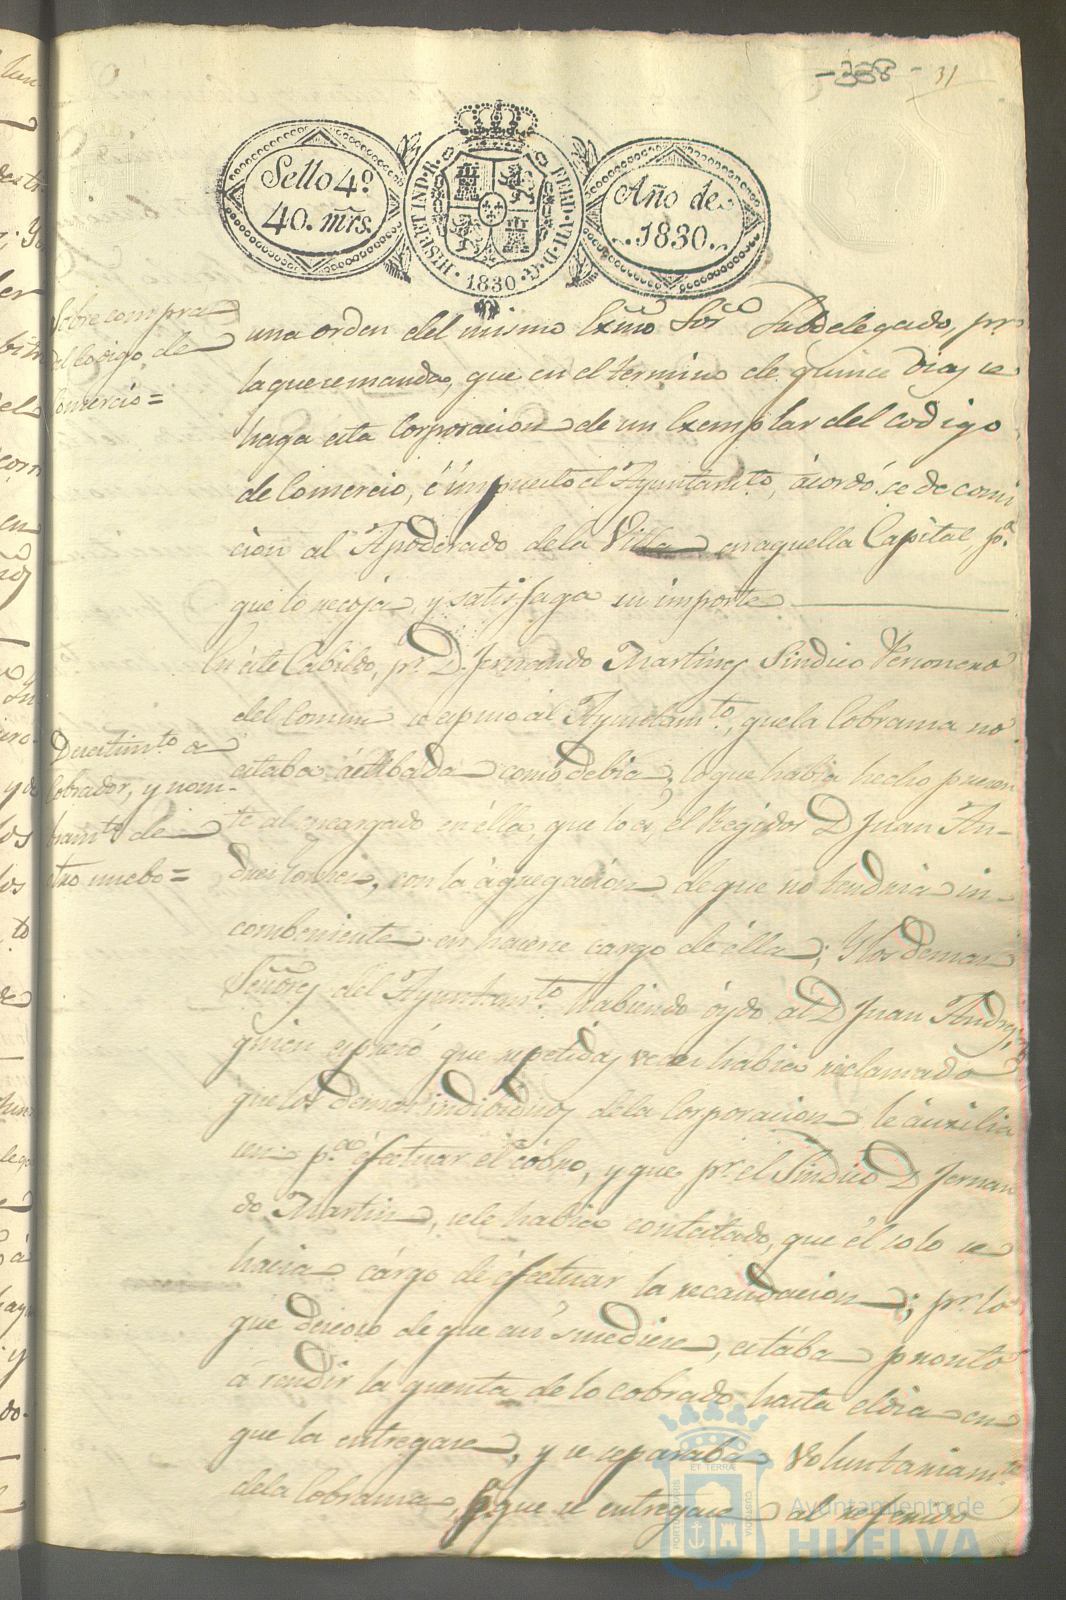 -358- 31
Sello 4.º
40. mrs.
HISP. ET IND. R. FERD. VII. D. G.
1830
Año de
1830.
Sobre compra
del Codigo de
Comercio=
una orden del mismo Exmo Sor Subdelegado, pr.
la que se manda, que en el termino de quince dias se
haga esta Corporacion de un Exemplar del codigo
de Comercio, é impuesto el Ayuntam.to, acordó se de comi
cion al Apoderado de la Villa en aquella Capital, p.ª
que lo recoja, y satisfaga su importe
En éste Cabildo, pr. D. Fernando Martinez Sindico Personero
del Comun se espuso al Ayuntam.to, que la Cobransa no
Desestim.to de
Cobrador, y nom-
bram.to de
otro nuebo=
estaba áctibada como debia, lo que habia hecho presen
te al encargado en élla, que lo és, el Regidor D Juan An-
dres, con la ágregacion de que no tendria in-
combeniente en hacerse cargo de élla; Y los demas
Señores del Ayuntam.to habiendo óydo al D Juan Andres,
quien espresó que repetidas veces habia reclamado
que los demas indibiduos de la Corporacion le áuxilia
sen p.ª éfectuar el cobro, y que pr. el Sindico D Fernan
do Martin, se le habia contestado, que él solo se
hacia cárgo de éfectuar la recaudacion; pr. lo
que deseoso de que así sucediese, estába pronto
á rendir la quenta de lo cobrado hasta el dia en
que la entregase, y se separaba Voluntariam.te
de la Cobransa, p.ª que se entregase al referido
PORTUS MARIS ET TERRAE CUSTODIA
Ayuntamiento de
HUELVA